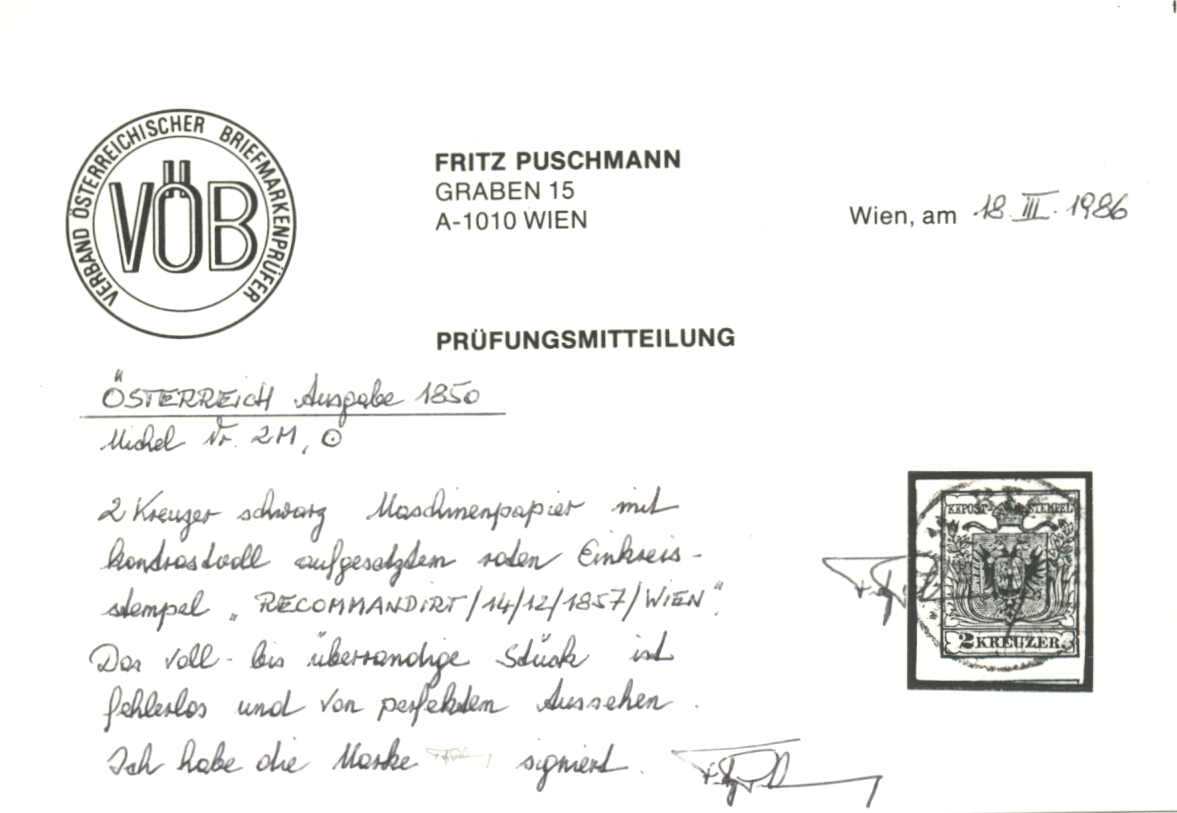 VERBAND ÖSTERREICHISCHER BRIEFMARKENPRÜFER
VÖB
FRITZ PUSCHMANN
GRABEN 15
A-1010 WIEN
Wien, am 18. III. 1986
PRÜFUNGSMITTEILUNG
ÖSTERREICH Ausgabe 1850
Michel Nr. 2M, ⊙
2 Kreuzer schwarz Maschinenpapier mit
kontrastvoll aufgesetztem roten Einkreis-
stempel "RECOMMANDIRT/14/12/1857/WIEN".
Das voll- bis überrandige Stück ist
fehlerlos und von perfektem Aussehen.
Ich habe die Marke signiert.
KKPOST-STEMPEL
2 KREUZER